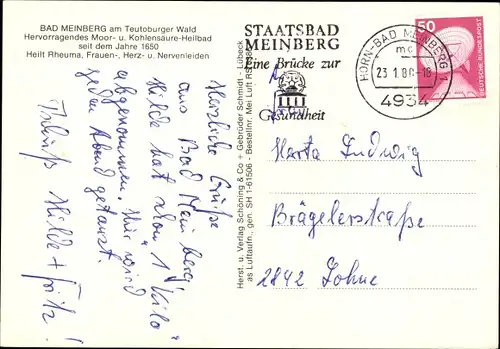 BAD MEINBERG am Teutoburger Wald
Hervorragendes Moor- u. Kohlensäure-Heilbad
seit dem Jahre 1650
Heilt Rheuma, Frauen-, Herz- u. Nervenleiden
STAATSBAD
MEINBERG
Eine Brücke zur
Gesundheit
HORN-BAD MEINBERG 1
mc
23.1.80-18
4934
50
DEUTSCHE BUNDESPOST
Herzliche Grüße
aus Bad Meinberg
Hilde hat schon "1 Kilo"
abgenommen. Hier wird
jeden Abend getanzt.
Tschüß Hilde + Fritz!
Herst. u. Verlag Schöning & Co + Gebrüder Schmidt - Lübeck
as Luftaufn., gen. SH 1-61506 - Bestellnr. Mei Luft
Ludwig
Brägelerstraße
2842 Lohne